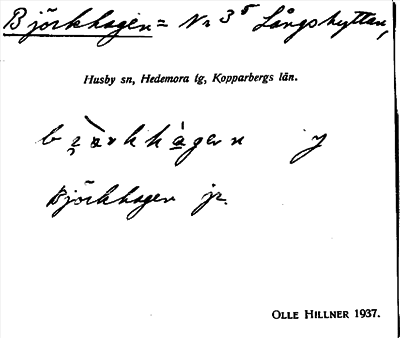 Björkhagen = Nr 3⁵ Långshyttan,
Husby sn, Hedemora tg, Kopparbergs län.
j
Björkhagen jr.
OLLE HILLNER 1937.